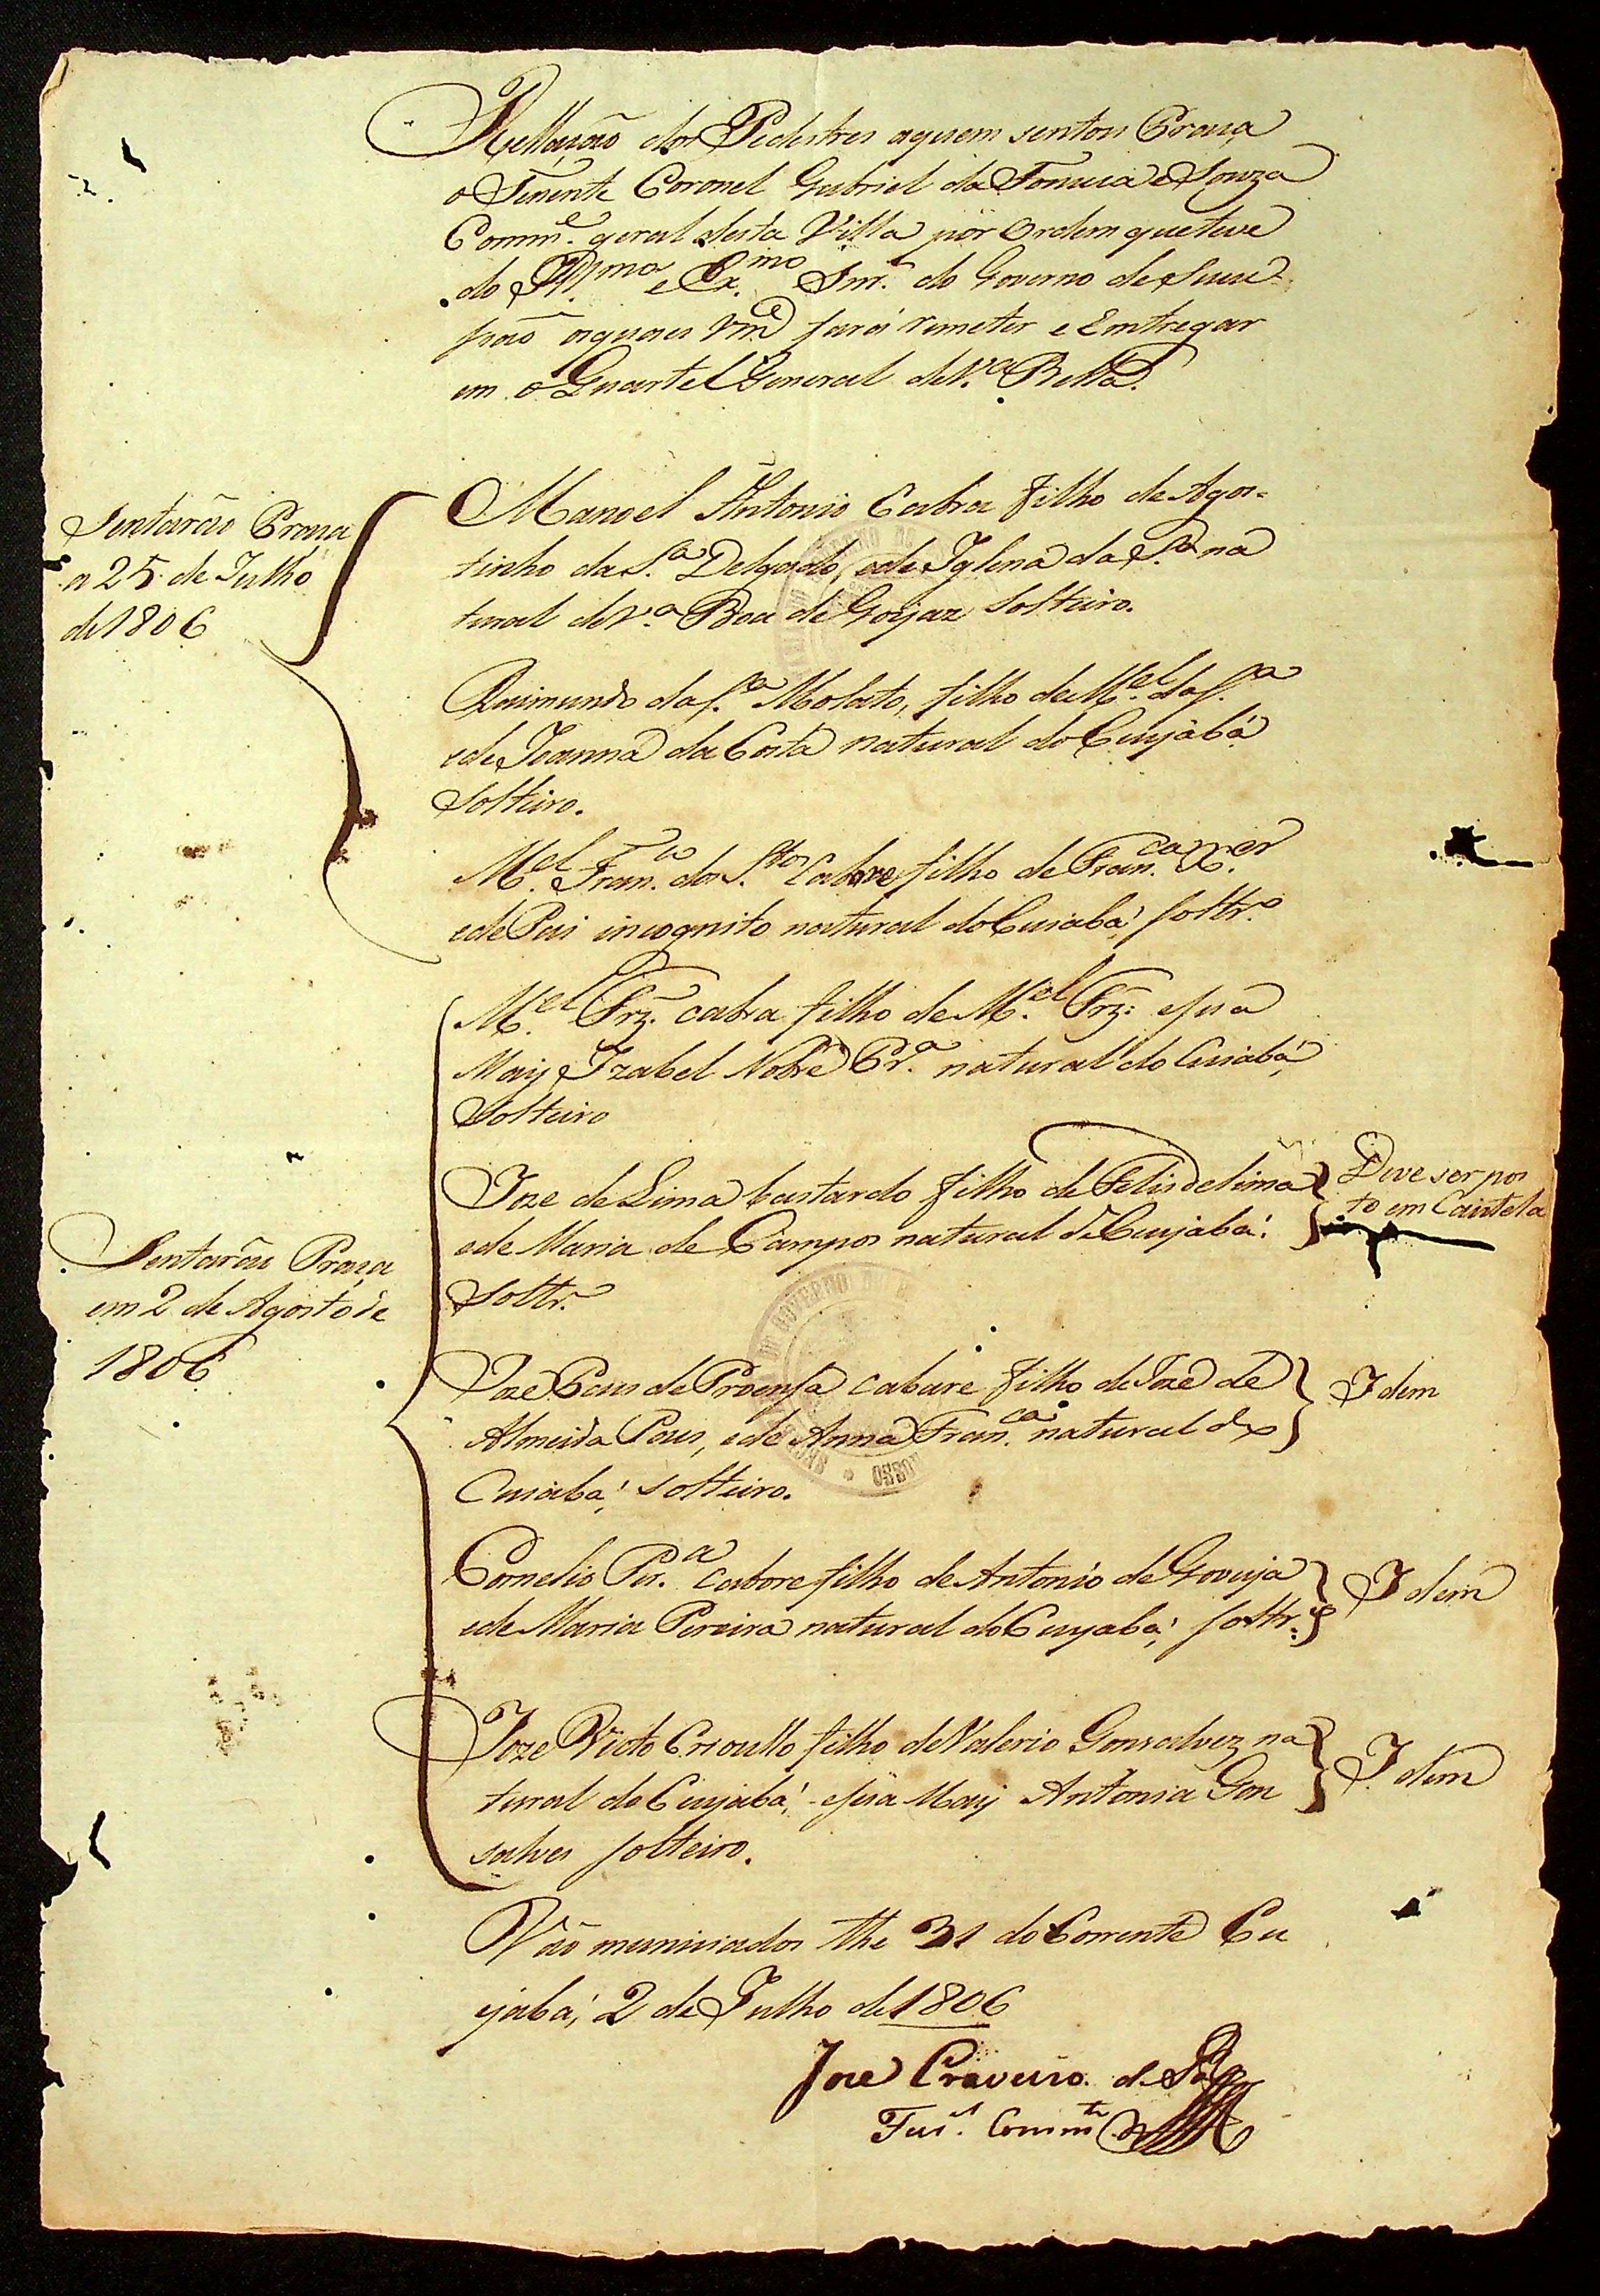 Rellação dos Pedestres aquem sentou Praça
o Tenente Coronel Gabriel da Fonceca e Souza
Comm.e geral desta Villa por Ordem que teve
do Ill.mo e Ex.mo Snr. do Governo de Suces-
são aquaes Vm.ce fará remeter e Emtregar
em o Quartel General de V.a Bella.
Sentarão Praça
a 25 de Julho
de 1806
Manoel Antonio Cabra filho de Agos-
tinho da S.a Delgado, e de Iglena da S.a na
tural de V.a Boa de Goyaz Solteiro.
Raimundo da S.a Molato, filho de M.el da S.a
e de Joanna da Costa natural do Cuyabá
Solteiro.
M.el Fran.co dos S.tos Cabore filho de Fran.ca X.er
e de Pai incognito natural do Cuiabá, soltr.o
M.el Frz. cabra filho de M.el Frz: e sua
May Izabel Nobre Pr.a natural do Cuiabá,
Solteiro
Joze de Lima bastardo filho de Felis de lima
e de Maria de Campos natural de Cuyabá.
Soltr.o
Deve ser pos
to em Cautela
Sentarão Praça
em 2 de Agosto de
1806
Joze Paes de Proensa cabure filho de Joze de
Almeida Paes, e de Anna Fran.ca natural do
Cuiabá, solteiro.
Idem
Cornelio Per.a cabore filho de Antonio de Gouvja
e de Maria Pereira natural do Cuyabá, soltr.o
Idem
Joze Victo Crioullo filho de Valerio Gonsalvez na
tural do Cuyabá, e sua May Antonia Gon
salves solteiro.
Idem
Vão municiados the 31 do Corrente Cu
yabá, 2 de Julho de 1806
Joze Craveiro de Sá
Comm.te